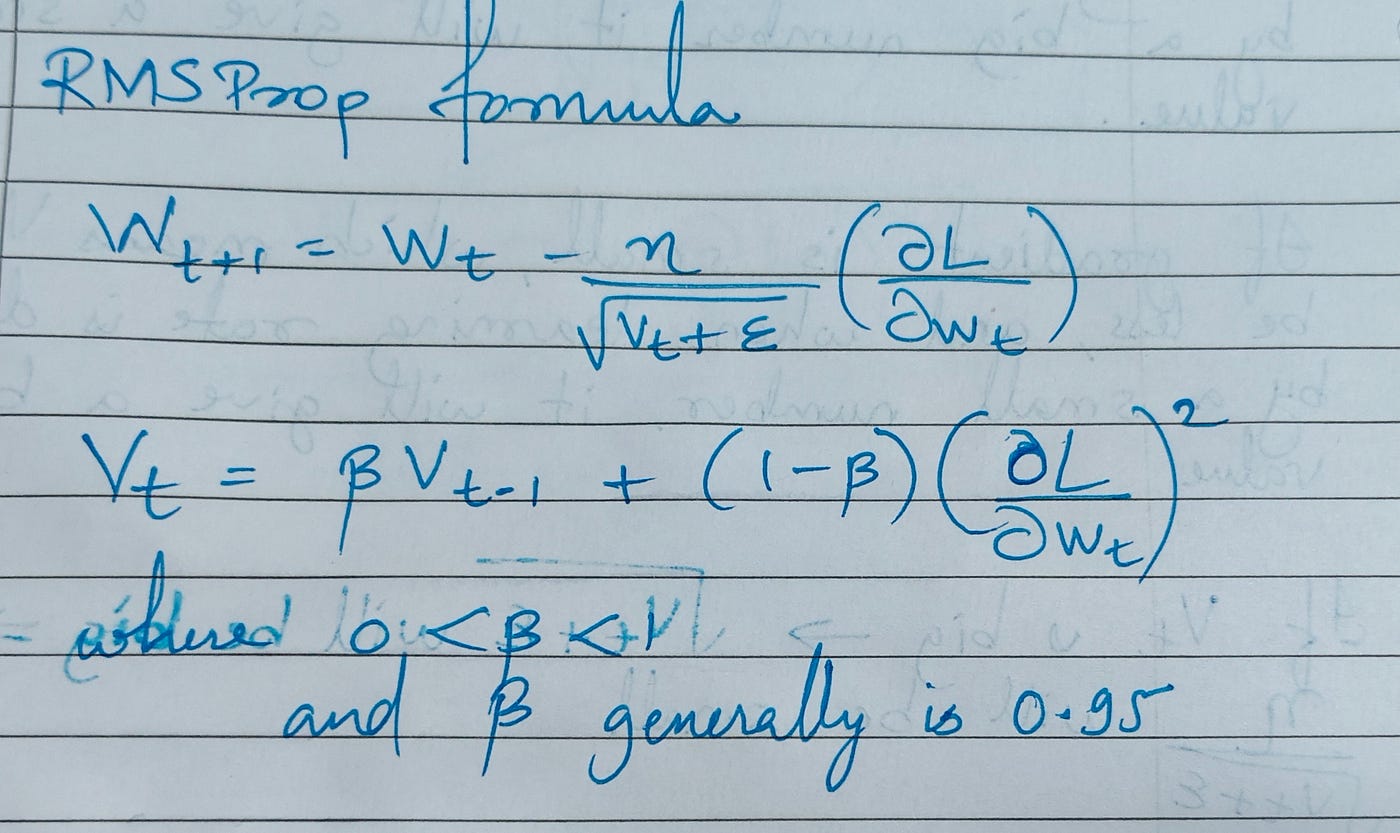 RMSProp formula
W_{t+1} = W_t - η/√(V_t + ε) (∂L/∂W_t)
V_t = β V_{t-1} + (1-β) (∂L/∂W_t)²
0 < β < 1
and β generally is 0.95